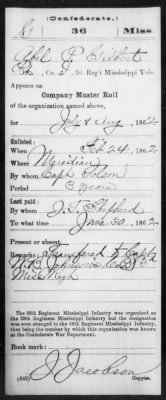 (Confederate.)
36 Miss.
Abel P. Gilbert
Co. 36 Reg't Mississippi Vols.
Appears on
Company Muster Roll
of the organization named above,
for July & Aug, 1862
Enlisted:
When Feb 24, 1862
Where Meridian
By whom Capt
Period 3 years
Last paid:
By whom J. T. Shepherd
To what time June 30, 1862
Present or absent
Remarks: Transferred to Capt
Miss Regt
The 36th Regiment Mississippi Infantry was organized
Regiment Mississippi Infantry, that
being the number by which this organization was known
at the Confederate War Department.
Book mark:
J. Jacobson
(642) Copyist.